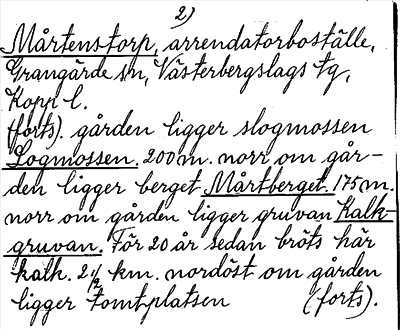 2)
Mårtenstorp, arrendatorboställe,
Grangärde sn, Västerbergslags tg,
Kopp l.
(forts). gården ligger slogmossen
Logmossen. 200 m. norr om går-
den ligger berget Mårtberget. 175 m.
norr om gården ligger gruvan Kalk-
gruvan. För 20 år sedan bröts här
kalk. 2 1/2 km. nordöst om gården
ligger Tomtplatsen (forts).